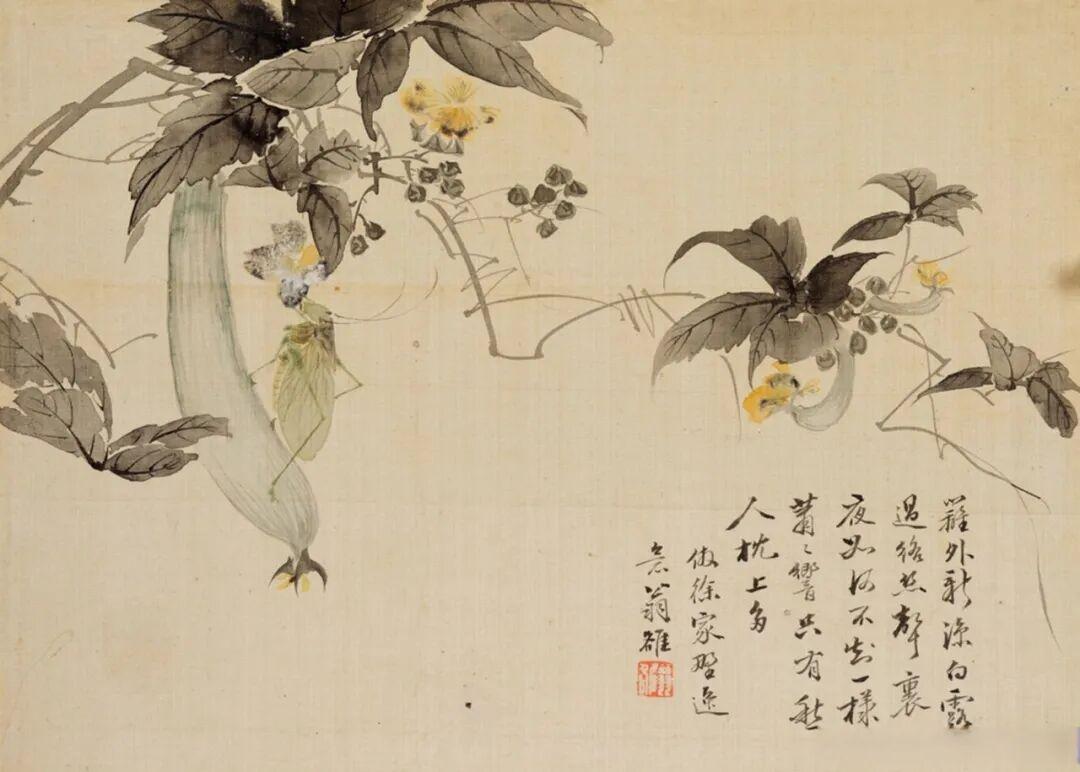 籬外新涼白露
過絡絲聲裏
夜如何不知一樣
蕭〻響只有愁
人枕上多
倣徐家野逸
意翁雒